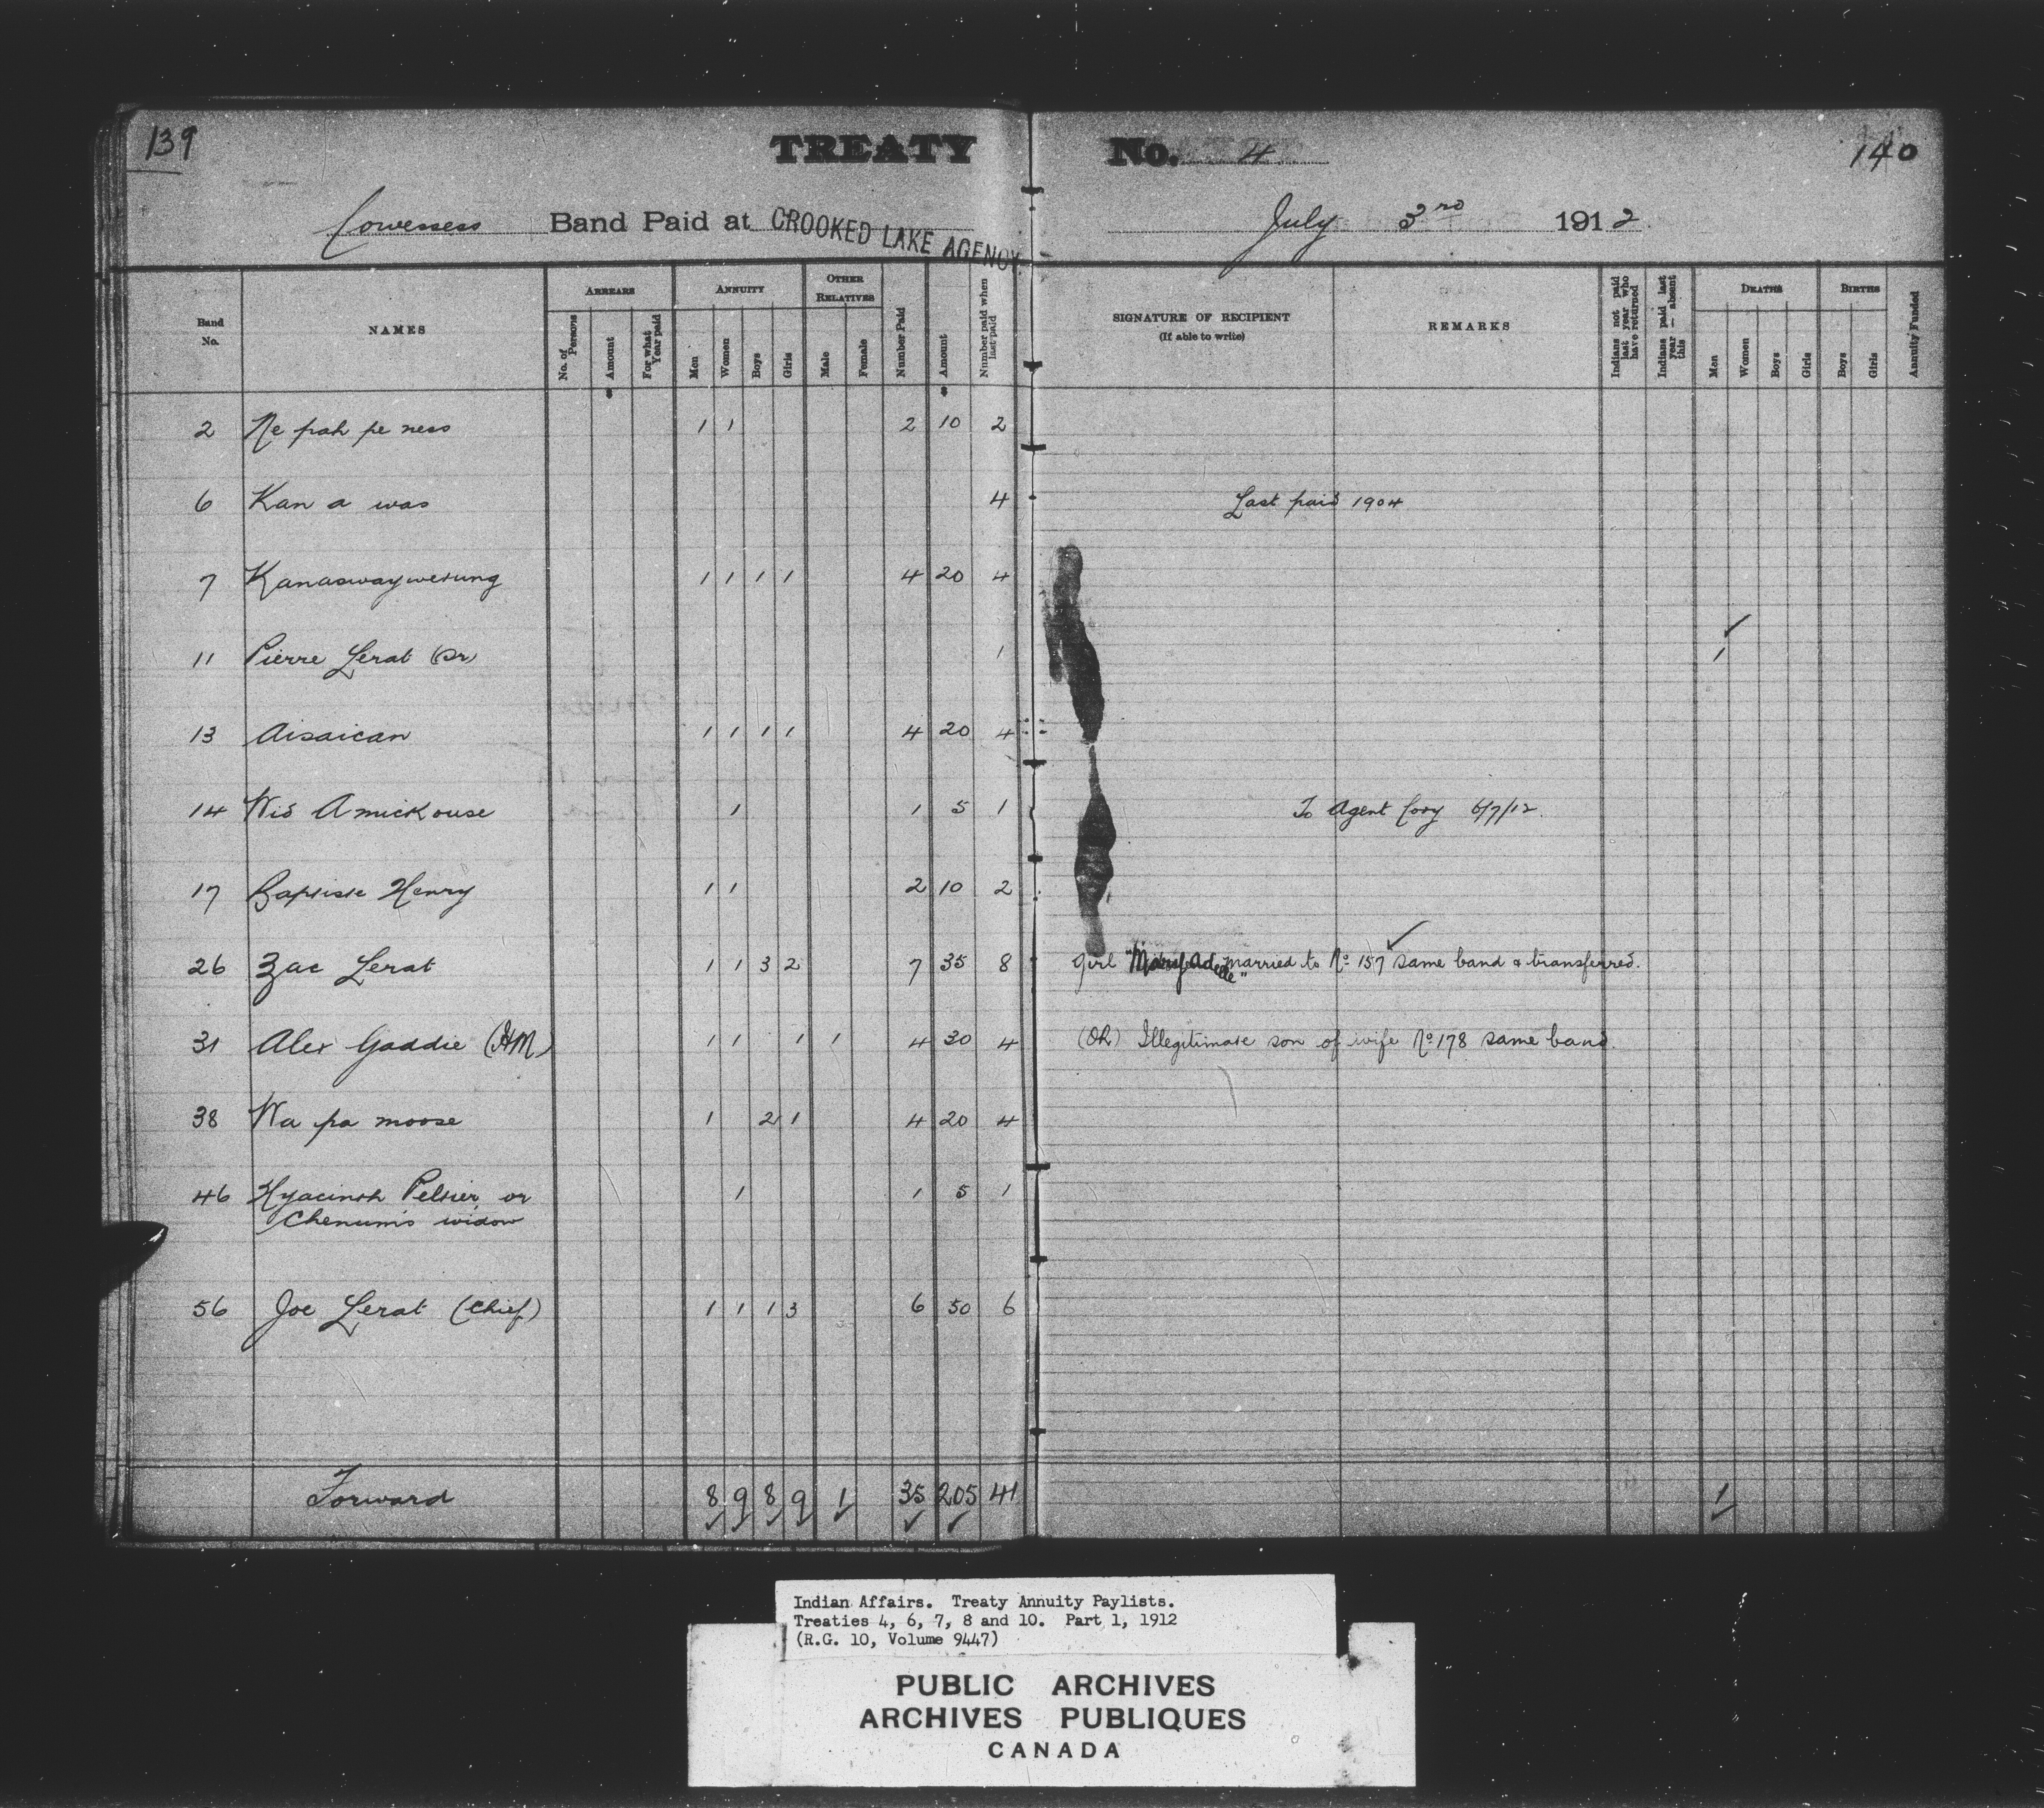 139
TREATY No. 4
140
Cowessess Band Paid at CROOKED LAKE AGENCY. July 3rd 1912
Band No.
NAMES
ARREARS
No. of Persons
Amount
For what Year paid
ANNUITY
Men
Women
Boys
Girls
OTHER RELATIVES
Male
Female
Number Paid
Amount
Number paid when last paid
SIGNATURE OF RECIPIENT
(If able to write)
REMARKS
Indians not paid last year who have returned
Indians paid last year — absent this
DEATHS
Men
Women
Boys
Girls
BIRTHS
Boys
Girls
Annuity Funded
2 Ne pah pe ness 1 1 2 10 2
6 Kan a was 4 Last paid 1904
7 Kanaswaywetung 1 1 1 1 4 20 4
11 Pierre Lerat (Sr) 1 1
13 Aisaican 1 1 1 1 4 20 4
14 Wid Amickouse 1 1 5 1 To Agent Cory 6/7/12.
17 Baptiste Henry 1 1 2 10 2
26 Zac Lerat 1 1 3 2 7 35 8 Girl "Mary Adelle" married to No 157 same band & transferred.
31 Alex Gaddie (HM) 1 1 1 1 4 30 4 (OR) Illegitimate son of wife No 178 same band.
38 Wa pa moose 1 2 1 4 20 4
46 Hyacinth Peltier or 1 1 5 1
Chenum's widow
56 Joe Lerat (Chief) 1 1 1 3 6 50 6
Forward 8 9 8 9 1 35 205 41 1
Indian Affairs. Treaty Annuity Paylists.
Treaties 4, 6, 7, 8 and 10. Part 1, 1912
(R.G. 10, Volume 9447)
PUBLIC ARCHIVES
ARCHIVES PUBLIQUES
CANADA